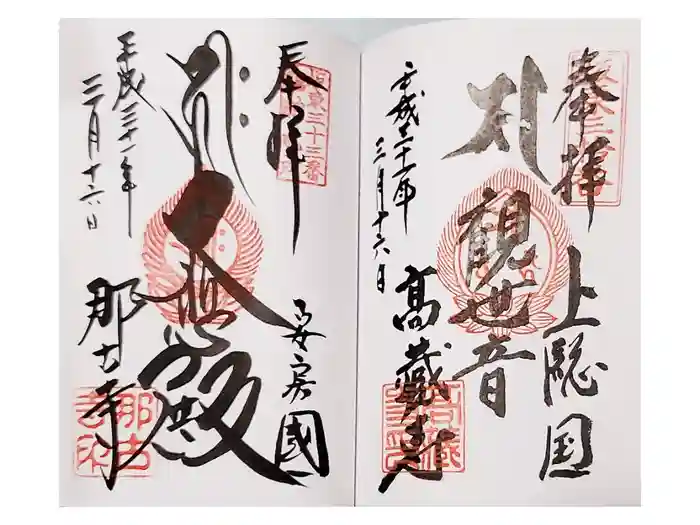 奉拝
上総国
観世音
平成三十一年
三月十六日
高蔵寺
奉拝
坂東三十三番
安房國
大悲殿
平成三十一年
三月十六日
那古寺